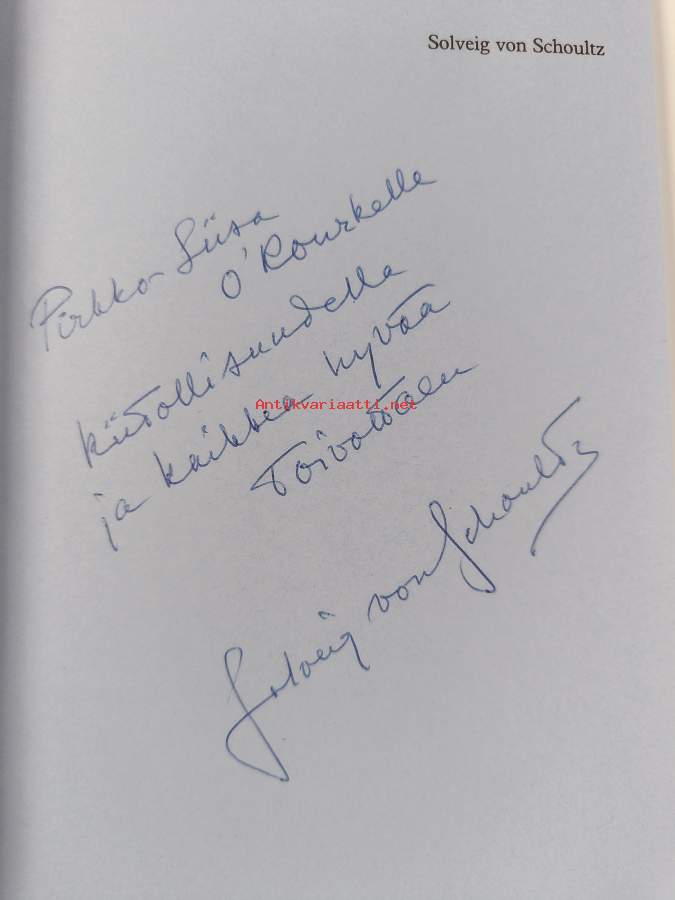 Solveig von Schoultz
Pirkko-Liisa
O'Rourkelle
kiitollisuudella
ja kaikkea hyvää
toivottaen
Antikvariaatti.net
Solveig von Schoultz